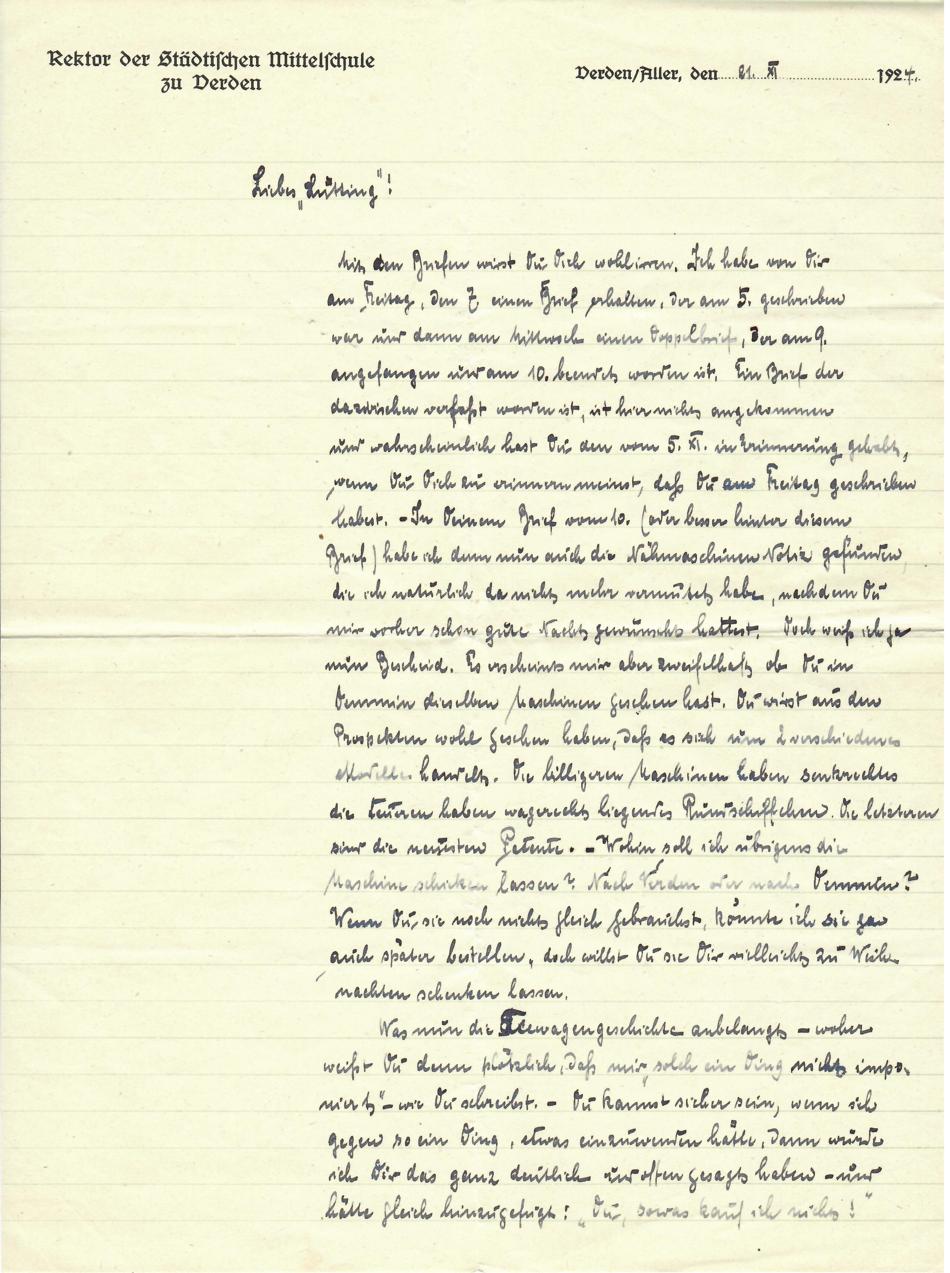 Rektor der Städtischen Mittelschule
zu Verden
Verden/Aller, den 21. XI 1924.
Liebes „Lütting"!
Mit den Briefen wirst Du Dich wohl irren. Ich habe von Dir
am Freitag, den 7. einen Brief erhalten, der am 5. geschrieben
war und dann am Mittwoch einen Doppelbrief, der am 9.
angefangen und am 10. beendet worden ist. Ein Brief der
dazwischen verfaßt worden ist, ist hier nicht angekommen
und wahrscheinlich hast Du den vom 5. XI. in Erinnerung gehabt,
wenn Du Dich zu erinnern meinst, daß Du am Freitag geschrieben
habest. – In Deinem Brief vom 10. (oder besser hinter diesem
Brief) habe ich denn nun auch die Nähmaschinen Notiz gefunden,
die ich natürlich da nicht mehr vermutet habe, nachdem Du
mir vorher schon gute Nacht gewünscht hattest. Doch weiß ich ja
nun Bescheid. Es erscheint mir aber zweifelhaft ob Du in
Demmin dieselben Maschinen gesehen hast. Du wirst aus den
Prospekten wohl gesehen haben, daß es sich um 2 verschiedene
Modelle handelt. Die billigeren Maschinen haben senkrechtes
die teueren haben wagerecht liegendes Rundschiffchen. Die letzteren
sind die neusten Patente. – Wohin soll ich übrigens die
Maschine schicken lassen? Nach Verden oder nach Demmin?
Wenn Du sie noch nicht gleich gebrauchst, könnte ich sie ja
auch später bestellen, doch willst Du sie Dir vielleicht zu Weih-
nachten schenken lassen.
Was nun die Teewagengeschichte anbelangt – woher
weißt Du denn plötzlich, daß mir „solch ein Ding nicht impo-
niert" – wie Du schreibst. – Du kannst sicher sein, wenn ich
gegen so ein Ding, etwas einzuwenden hätte, dann würde
ich Dir das ganz deutlich und offen gesagt haben – und
hätte gleich hinzugefügt: „Du, sowas kauf ich nicht!"